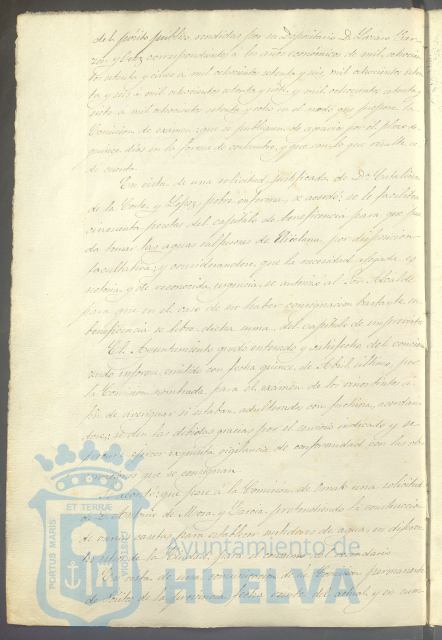 del pósito público rendidas por su Depositario D. Lázaro
y correspondientes a los años económicos de mil ochocien-
tos setenta y cinco a mil ochocientos setenta y seis, mil ochocientos seten-
ta y seis a mil ochocientos setenta y siete, y mil ochocientos setenta y
siete a mil ochocientos setenta y ocho en el modo que propone la
Comision de examen, que se publiquen de aparecer por el plazo de
quince dias en la forma de costumbre, y que con lo que resulte se
dé cuenta.
En vista de una solicitud justificada de Dª Catalina
de la Corte y Lopez, pobre enferma, se acordó: se le faciliten
cincuenta pesetas del capitulo de beneficencia para que pue-
da tomar las aguas salfurosas de por disposicion
facultativa; y considerandose, que la necesidad alegada es
notoria y de reconocida urgencia, se autorizó al Sor. Alcalde
para que en el caso de no haber consignacion bastante en
beneficencia se libre dicha suma del capitulo de imprevistos
El Ayuntamiento quedó enterado y satisfecho del concien-
zudo informe, emitido con fecha quince de Abril último, por
la Comision nombrada, para el examen de los vinos tintos, á
fin de averiguar si estaban adulterados con fuchina, acordan-
dose: se den las debidas gracias por el servicio indicado y se
ejercer esquisita vigilancia de conformidad con las ob-
servaciones que se consignan.
Se acordó: que pase a la Comision de una solicitud
de D. Antonio de Mora y Garcia, pretendiendo la construccion
de varias casetas para establecer de agua, en diferen-
tes sitios de la Ciudad, para el comun del vecindario
En vista de una comunicacion de la Comision permanente
de Pósitos de la provincia fecha del actual, y en cum-
PORTUS MARIS
ET TERRÆ
CUSTODIA
Ayuntamiento de
HUELVA